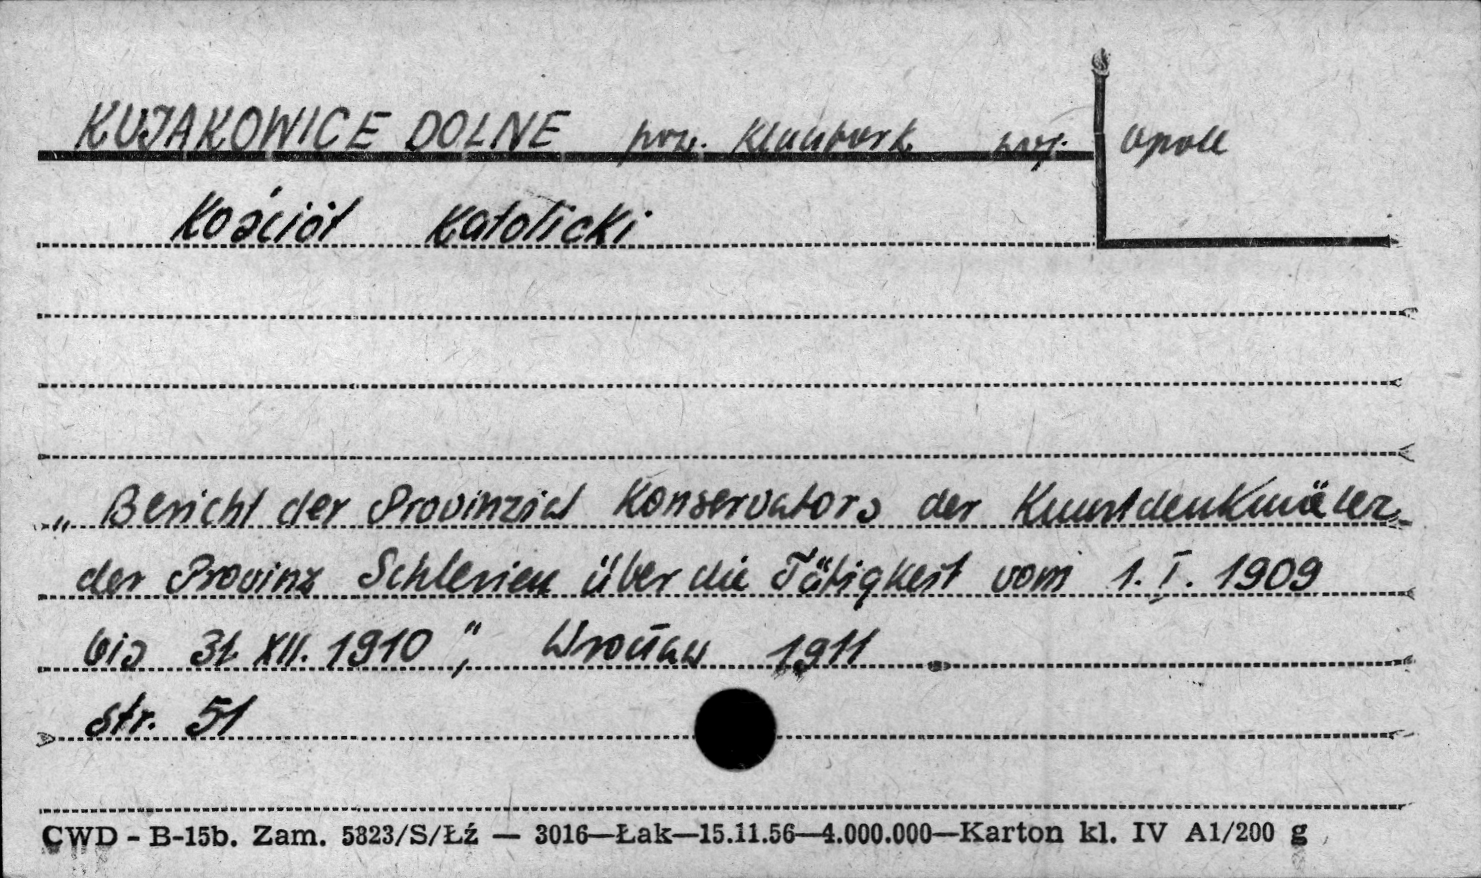 KUJAKOWICE DOLNE pow. Kluczbork woj. Opole
Kościół Katolicki
„Bericht der Provinzial Konservators der Kunstdenkmäler
der Provinz Schlesien über die Tätigkeit vom 1. I. 1909
bis 31. XII. 1910", Wrocław 1911
str. 51
CWD - B-15b. Zam. 5823/S/Łź — 3016—Łak—15.11.56—4.000.000—Karton kl. IV A1/200 g